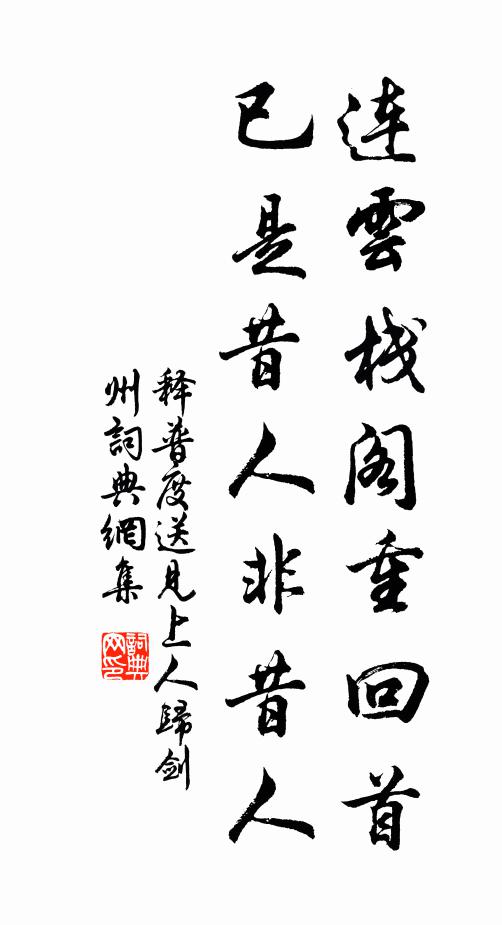 連雲栈阁重回首
已是昔人非昔人
释普度送見上人歸剑
州詞典網集
詞典网印